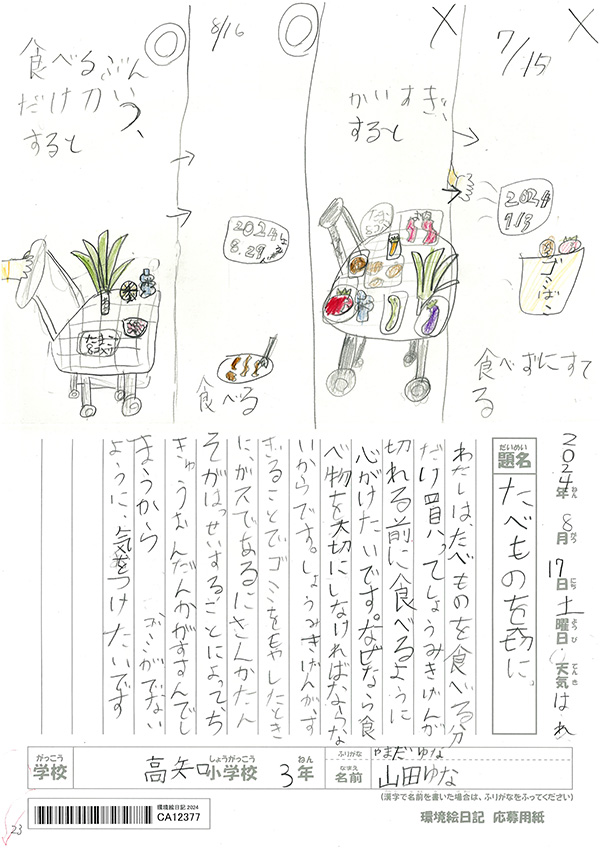 ×
7/15
2024
7.13
ゴミばこ
食べずにすて
る
×
かいすぎ
すると
たまご
◎
8/16
2024年
8.29
食べる
食べるぶん
だけかい、
すると
たまご
2024年 8月 17日 土曜日 天気 はれ
ねん がつ にち ようび てんき
だいめい
題名
たべものを大切に。
わたしは、たべものを食べる分
だけ買ってしょうみきげんが
切れる前に食べるように
心がけたいです。なぜなら食
べ物を大切にしなければならな
いからです。しょうみきげんが、す
ぎることでゴミをもやしたとき
に、ガスであるにさんかたん
そがはっせいすることによってち
きゅうおんだんかがすすんでし
まうから ゴミがでない
ように、気をつけたいです
がっこう
学校
高知口小学校 3年
しょうがっこう ねん
ふりがな やまだゆな
なまえ
名前 山田ゆな
(漢字で名前を書いた場合は、ふりがなをふってください)
環境絵日記 応募用紙
環境絵日記 2024
CA12377
23